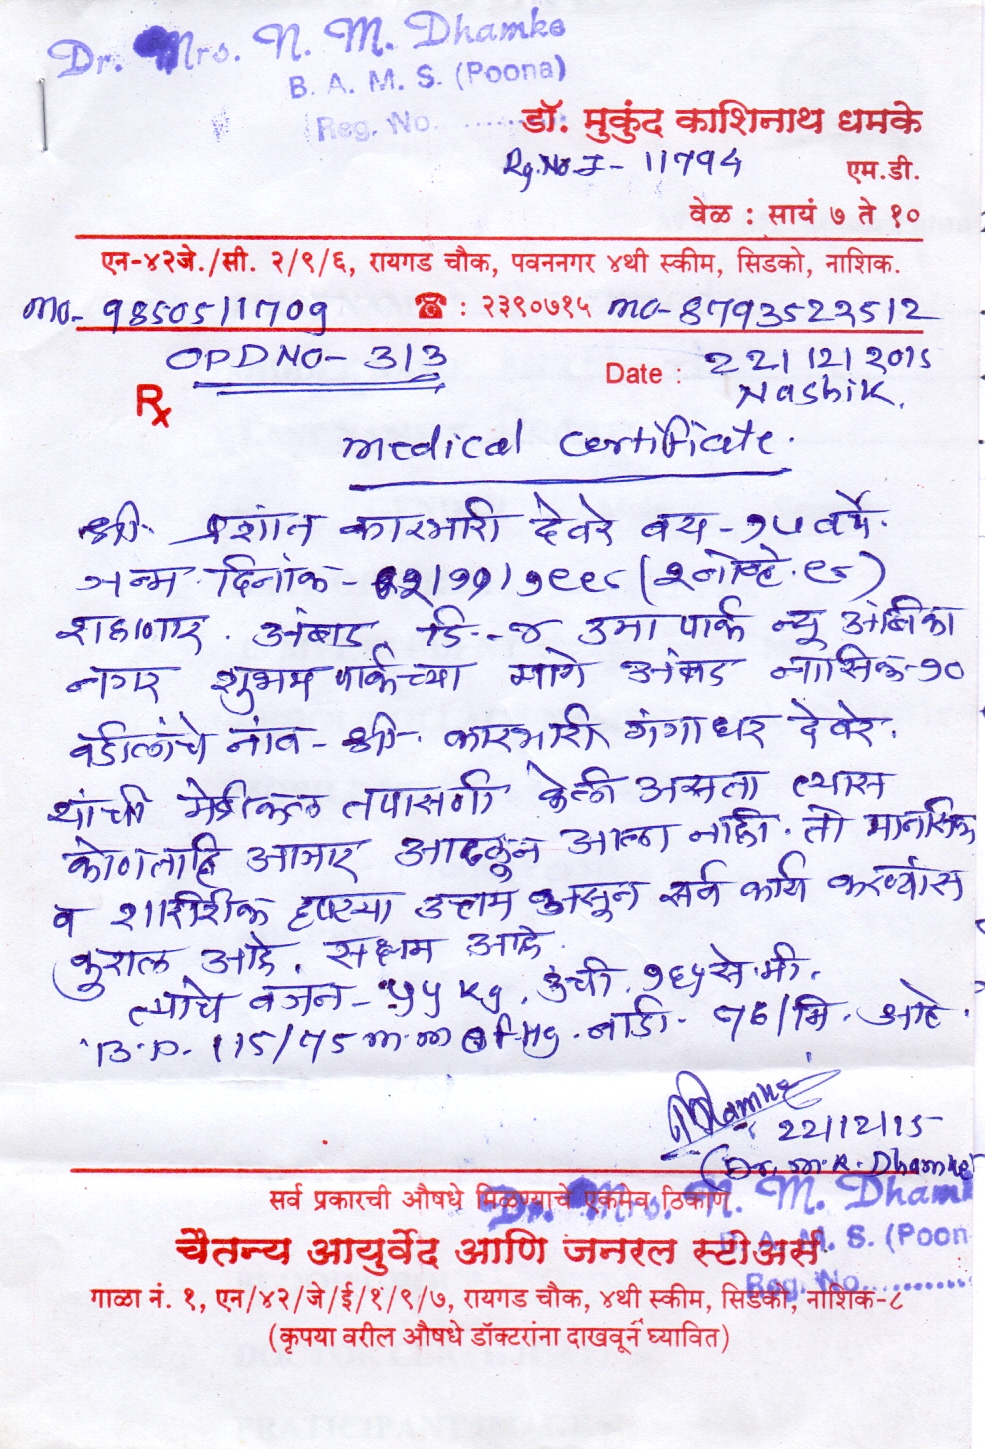 Dr. Mrs. N. M. Dhamke
B. A. M. S. (Poona)
Reg. No. ..........
डॉ. मुकुंद काशिनाथ धमके
Rg.No.I- 11794 एम.डी.
वेळ : सायं ७ ते १०
एन-४२जे./सी. २/९/६, रायगड चौक, पवननगर ४थी स्कीम, सिडको, नाशिक.
mo- 9850511709 ☎ : २३९०७१५ mo- 8793523512
OPD NO- 313 Date : 22/12/2015
Rx Nashik.
medical certificate.
श्री. प्रशांत कारभारी देवरे वय - १५ वर्षे.
जन्म दिनांक - २/११/१९९८ (२ नोव्हे. ९८)
राहाणार. अंबड, डि-४ उमा पार्क न्यू अंबिका
नगर शुभम पार्कच्या मागे अंबड नासिक-१०
वडीलांचे नांव - श्री. कारभारी गंगाधर देवरे.
यांची मेडीकल तपासणी केली असता त्यास
कोणताहि आजार आढळून आला नाही. तो मानसिक
व शारीरीक दृष्ट्या उत्तम असून सर्व कार्य करण्यास
कुशल आहे. सक्षम आहे.
त्यांचे वजन - ५५ kg. उंची. १६५ से.मी.
B.P. 115/75 m.m of Hg. नाडी - 76/मि. आहे.
22/12/15
(Dr. M.K. Dhamke
सर्व प्रकारची औषधे मिळण्याचे एकमेव ठिकाण
Dr. Mrs. N. M. Dhamk
चैतन्य आयुर्वेद आणि जनरल स्टोअर्स
A. M. S. (Poon
Reg. No. ..........
गाळा नं. १, एन/४२/जे/ई/१/९/७, रायगड चौक, ४थी स्कीम, सिडको, नाशिक-८
(कृपया वरील औषधे डॉक्टरांना दाखवून घ्यावित)